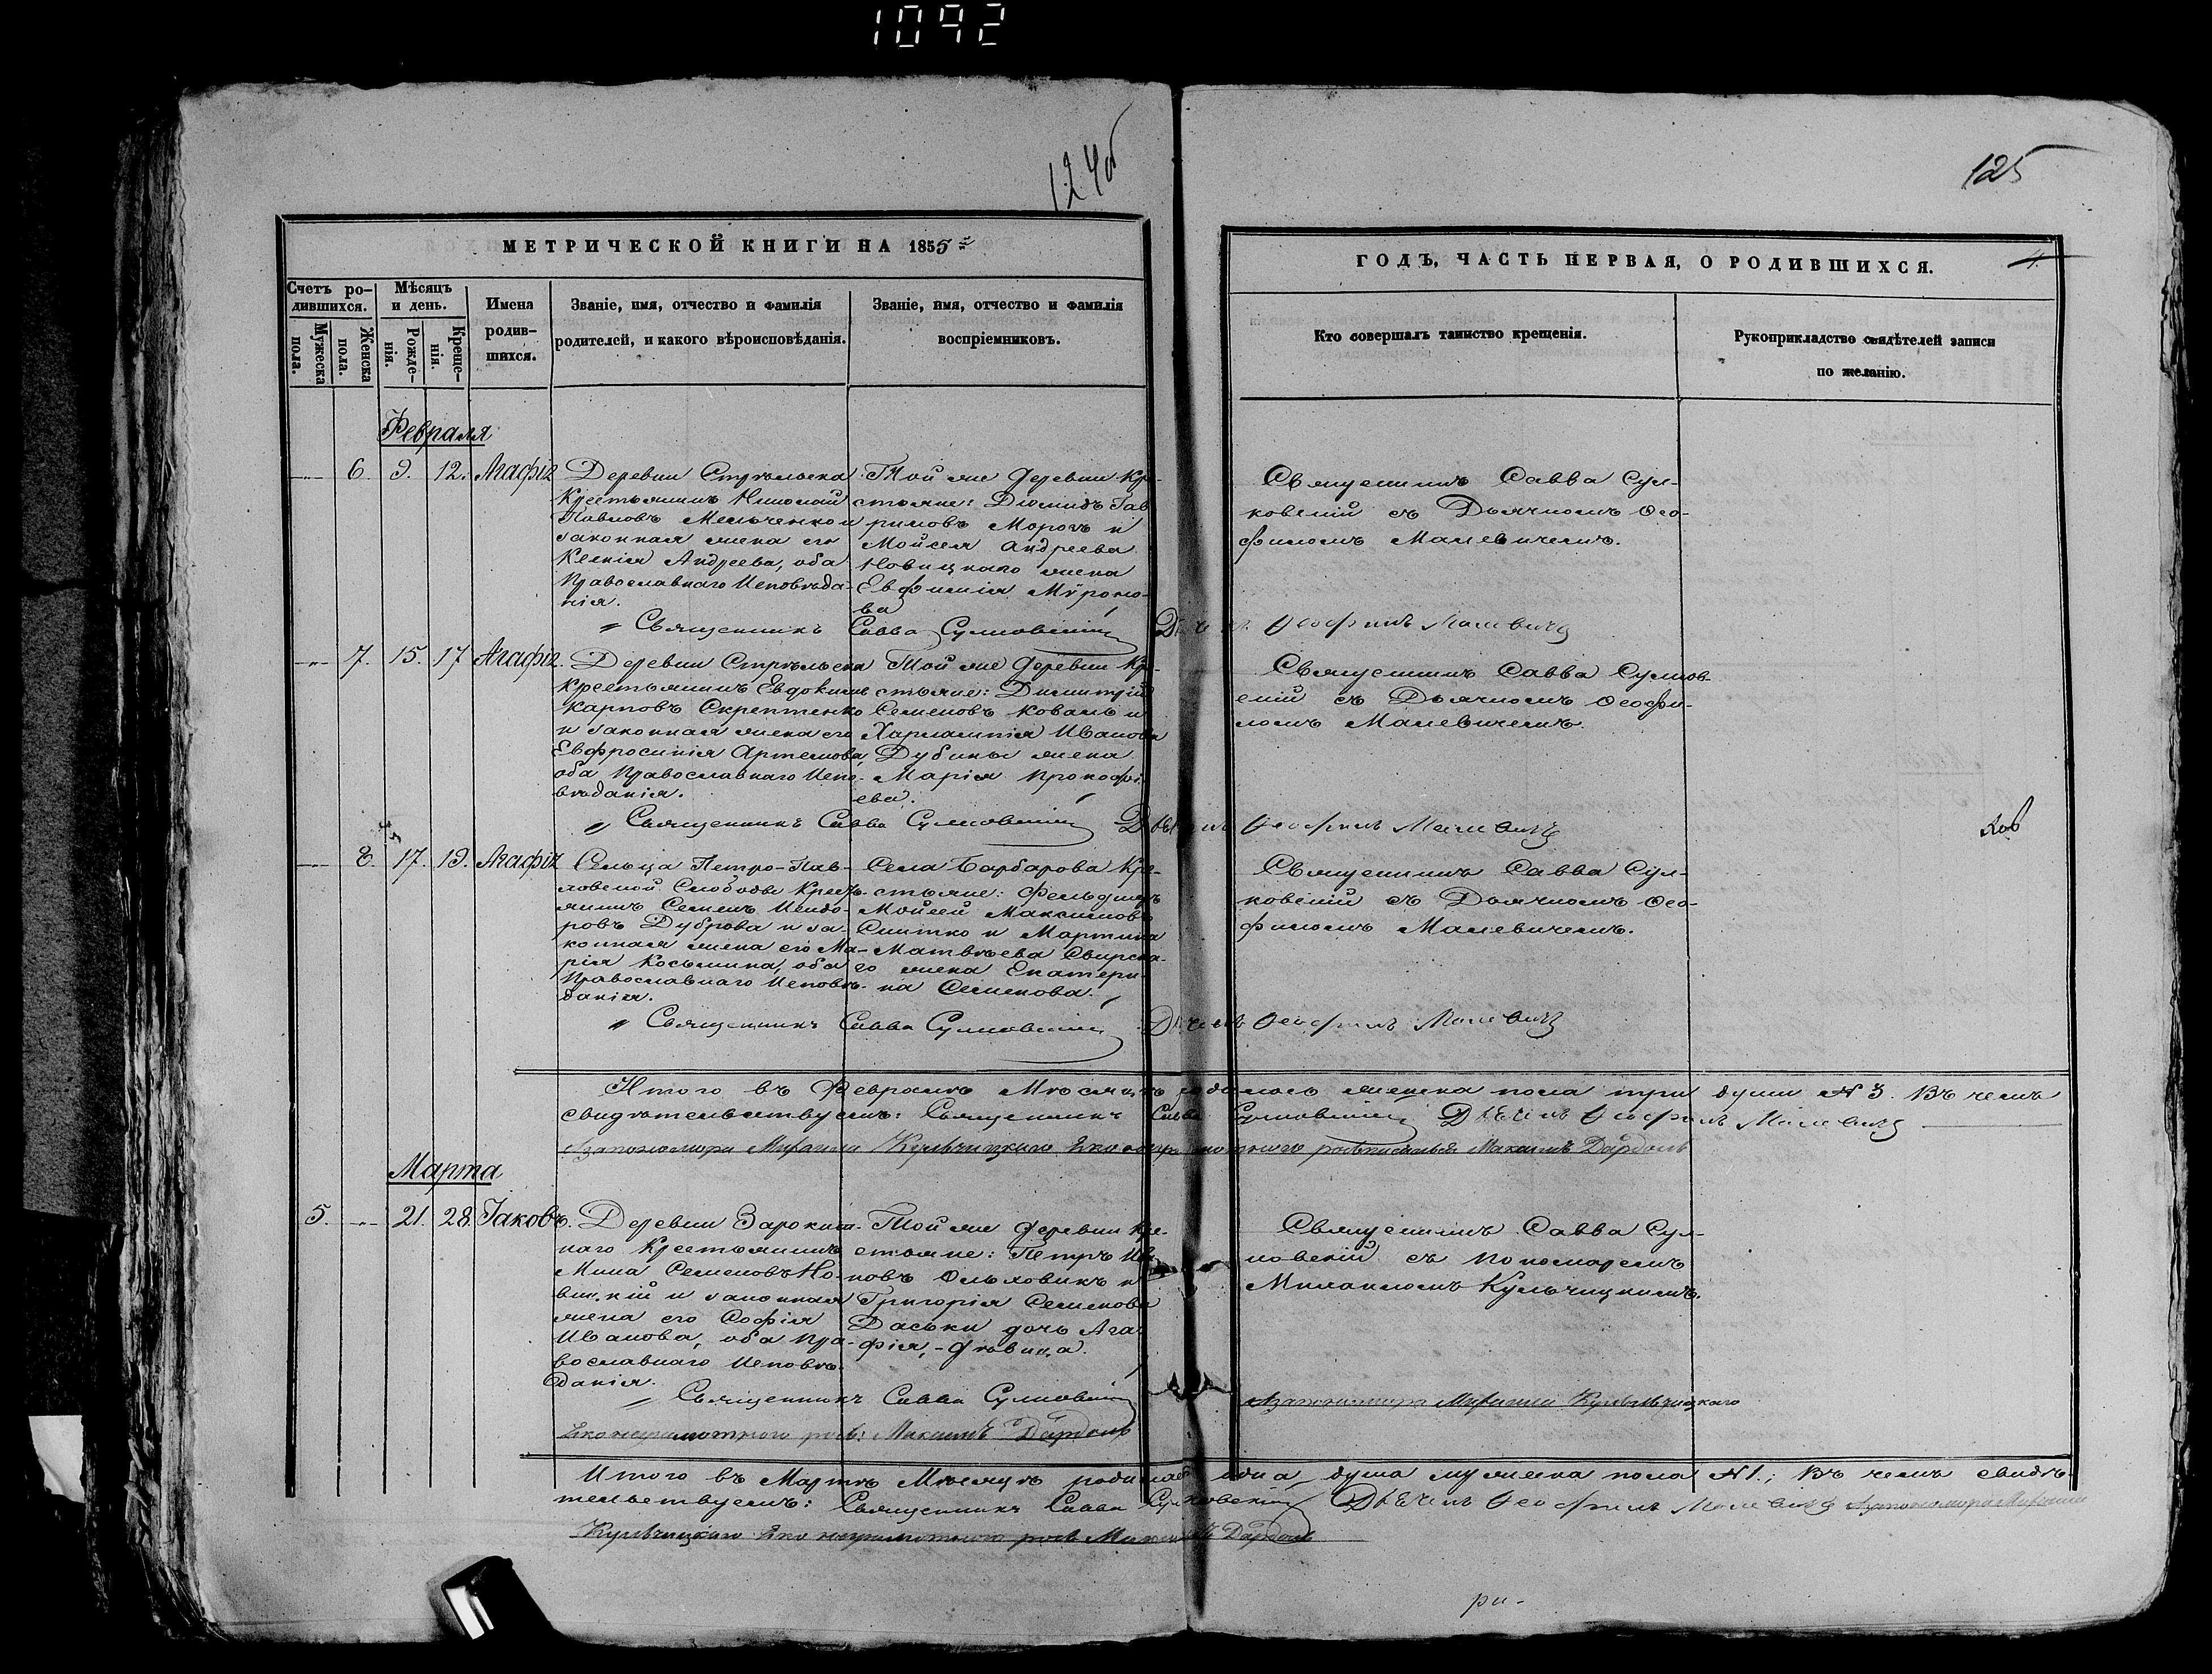 1092
124об
125
МЕТРИЧЕСКОЙ КНИГИ НА 1855й
ГОДЪ, ЧАСТЬ ПЕРВАЯ, О РОДИВШИХСЯ.
4.
Счетъ ро-
дившихся.
Мужеска
пола.
Женска
пола.
Мѣсяцъ
и день.
Рожде-
нія.
Креще-
нія.
Имена
родив-
шихся.
Званіе, имя, отчество и фамилія
родителей, и какого вѣроисповѣданія.
Званіе, имя, отчество и фамилія
воспріемниковъ.
Кто совершалъ таинство крещенія.
Рукоприкладство свидѣтелей записи
по желанію.
Февраля
6. 9. 12. Агафія
Деревни Стрѣльска
Крестьянинъ Николай
Павловъ Мельченко и
законная жена его
Ксенія Андреева, оба
Православнаго Исповѣда-
нія.
Той же деревни Кре-
стьяне: Діомидъ Гав
риловъ Морозъ и
Мойсея Андреева
Новицкаго жена
Евфимія Мѵроно-
ва
Священникъ Савва Сул-
ковскій съ Дьячкомъ Ѳео-
филомъ Малевичемъ.
Священникъ Савва Сулковскій Дьячекъ Ѳеофилъ Малевичъ
7. 15. 17 Агафія.
Деревни Стрѣльска
Крестьянинъ Евдокимъ
Карповъ Скрептенко
и законная жена его
Евфросинія Артемова,
оба Православнаго Испо-
вѣданія.
Той же деревни Кре-
стьяне: Димитрій
Семеновъ Коваль и
Харлампія Иванова
Дубины жена
Марія Прокофі-
ева.
Священникъ Савва Сулков-
скій съ Дьячкомъ Ѳеофи-
ломъ Малевичемъ.
Священникъ Савва Сулковскій Дьячекъ Ѳеофилъ Малевичъ
8. 17. 19. Агафія
Сельца Петро-Пав-
ловской Слободы Кресть-
янинъ Семенъ Исидо-
ровъ Дуброва и за-
конная жена его Ма-
рія Косьмина, оба
Православнаго Исповѣ-
данія.
Села Барбарова Кре-
стьяне: Фельдшеръ
Мойсей Максимовъ
Снитко и Мартина
Матвѣева Свирска-
го жена Екатери-
на Семенова.
Священникъ Савва Сул-
ковскій съ Дьячкомъ Ѳео-
филомъ Малевичемъ.
Священникъ Савва Сулковскій Дьячекъ Ѳеофилъ Малевичъ
Итого въ Февралѣ Мѣсяцѣ родилось женска пола три души № 3. Въ чемъ
свидѣтельствуемъ: Священникъ Савва Сулковскій Дьячекъ Ѳеофилъ Малевичъ
Кульчицкаго Максимъ Дардоль
Марта
5. 21. 28. Іаковъ.
Деревни Зарокит-
наго Крестьянинъ
Мина Семеновъ Но-
вицкій и законная
жена его Софія
Иванова, оба Пра-
вославнаго Исповѣ-
данія.
Той же деревни Кре-
стьяне: Петръ Ива
новъ Ольховикъ и
Григорія Семенова
Даськи дочь Ага-
фія,-дѣвица.
Священникъ Савва Сул-
ковскій съ Пономаремъ
Михаиломъ Кульчицкимъ.
Священникъ Савва Сулковскій
Кульчицкаго
Максимъ Дардоль
Итого въ Мартѣ Мѣсяцѣ родилась одна душа мужеска пола № 1.; Въ чемъ свидѣ-
тельствуемъ: Священникъ Савва Сулковскій Дьячекъ Ѳеофилъ Малевичъ
Кульчицкаго Дардоль
ри-